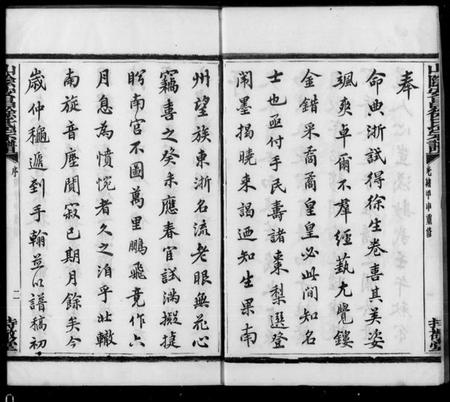 奉
命典浙試得徐生卷喜其英姿
颯爽卓爾不羣經藝尤覺鏤
金錯采矞矞皇皇必此間知名
士也亟付手民壽諸棗梨選登
闈墨揭曉來謁廼知生果南
州望族東浙名流老眼無花心
竊喜之癸未應春官試滿擬捷
盼南宮不圖萬里鵬飛竟作六
月息為憤惋者久之洎乎北轍
南旋音塵闃寂已期月餘矣今
歲仲穐遞到手翰並以譜稿初
光緒甲申重修
序
二